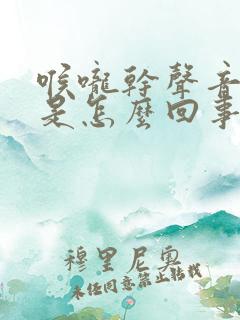 喉嚨幹聲音
是怎麼回事
穆里尼奧
未经同意禁止转载